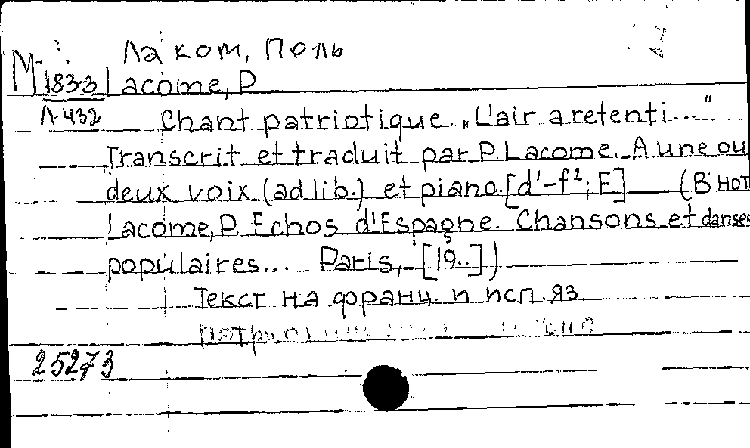 Лаком, Поль
М
1833 Lacome, P
Л 432 Chant patriotique „L'air a retenti..."
Transcrit et traduit par P. Lacome. A une ou
deux voix (ad lib.) et piano. [d'-f²; E] (В нот
Lacome, P. Echos d'Espagne. Chansons et danses
populaires... Paris, [19..])
Текст на франц. и исп яз
25273